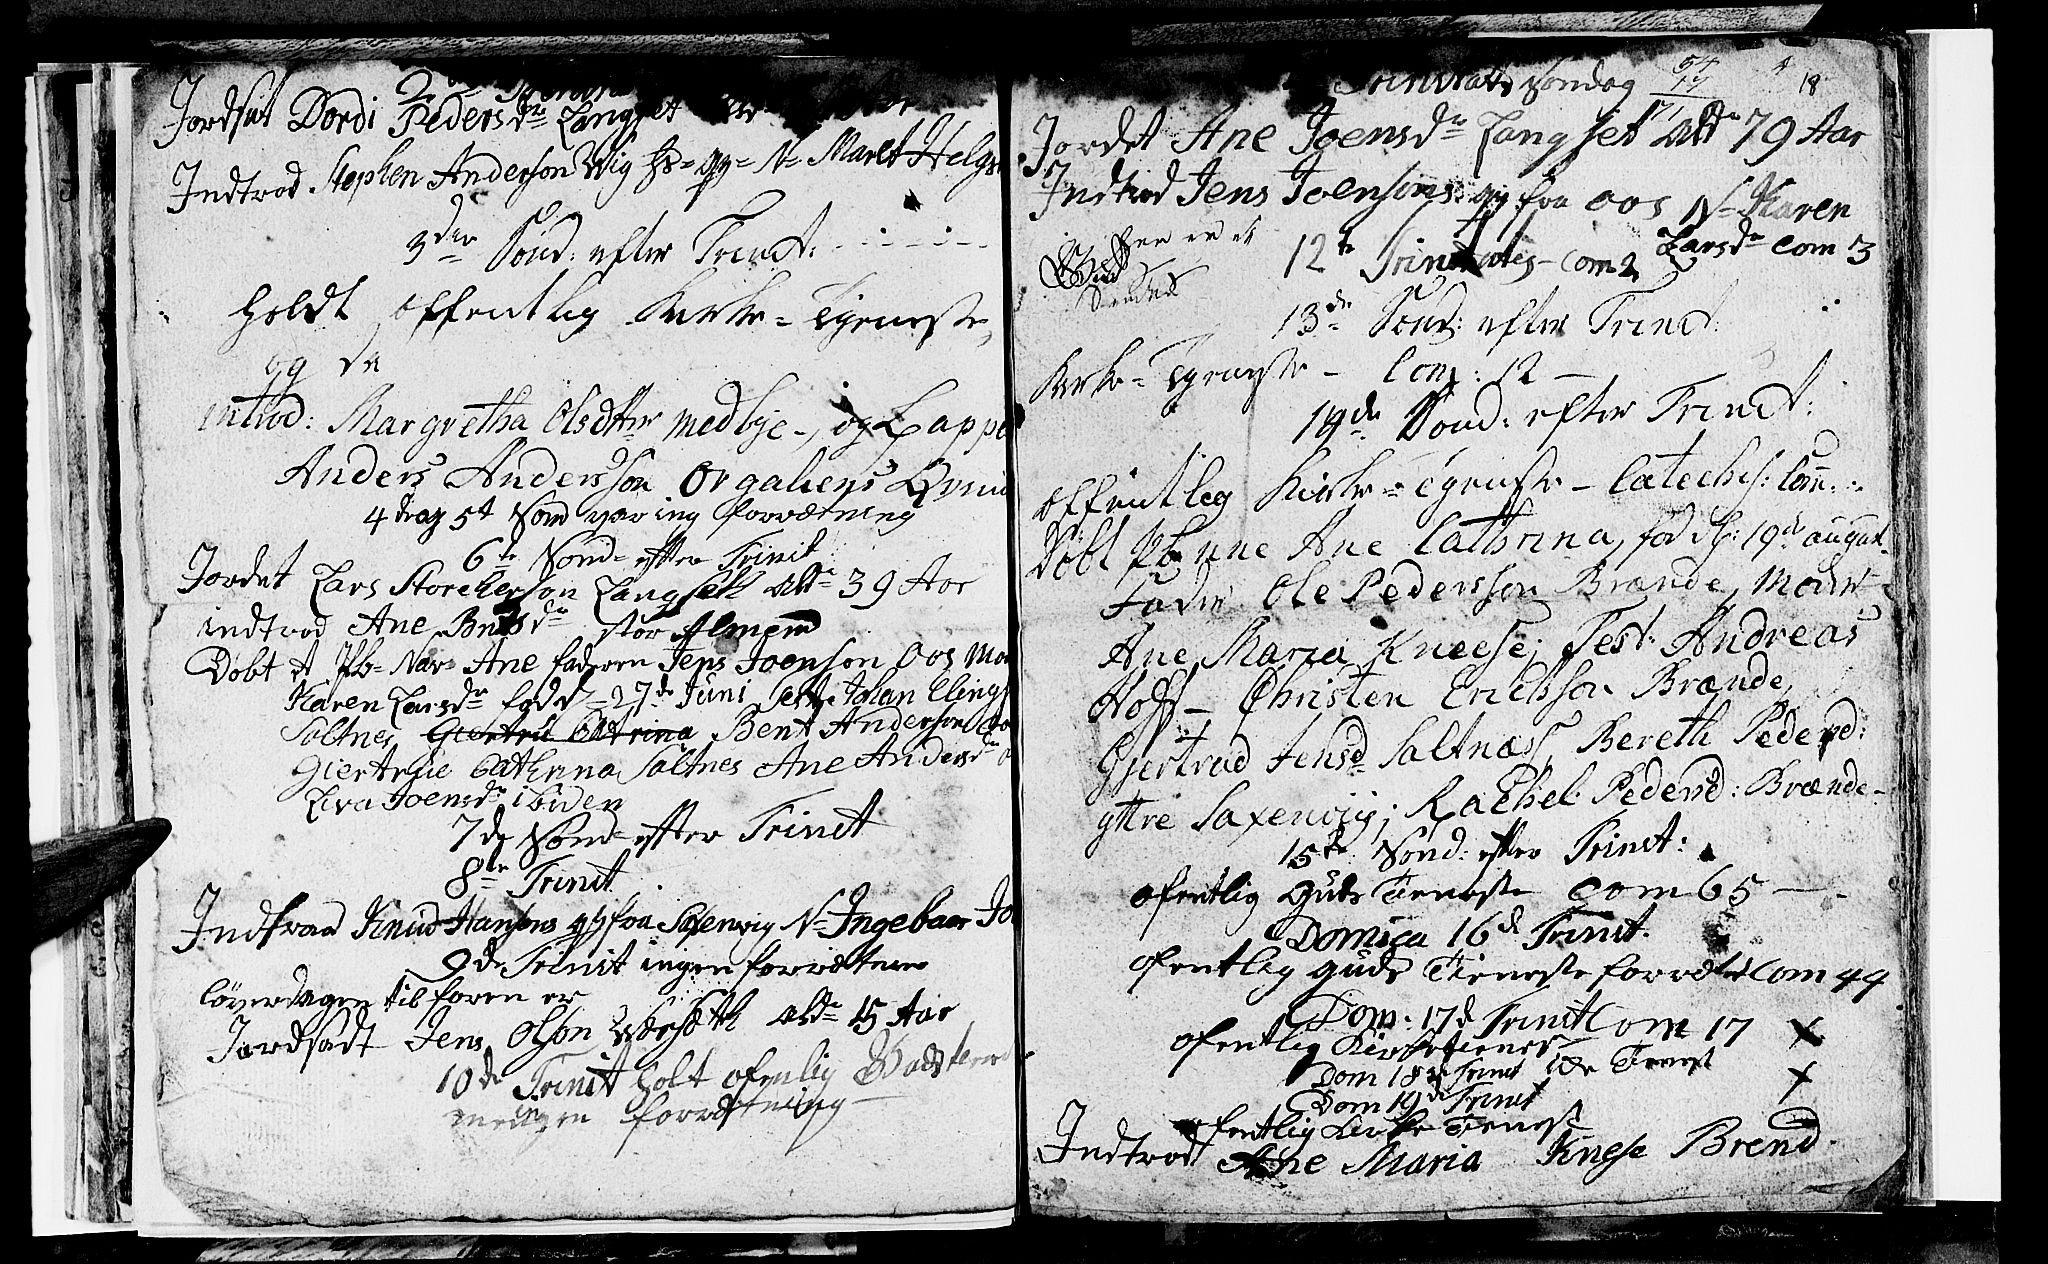 Jordsat Dordi Pedersdr Langset
Indtrod Stephen Anderson Wig Hs= qv= N= Maret Helgs
3die Sønd: efter Trinit:
holdt offentlig Kirke-Tjeneste,
og da
introd: Margretha Olsdtter Medbye-, og Lappe
Anders Andersson Orgaliens Qvin
4de og 5t Sønd var ing forretning
6te Sønd= efter Trinit
Jordet Lars Storckerson Langseth ald= 39 Aar
indtrod Ane Bentsdr Stor Almend
Døbt et Pb= Nav= Ane faderen Jens Joenson Oos Mo
Karen Larsdr fød d= 27de Juni Test Johan Elings
Saltnes Giertru Catrina Bent Anderson
Giertrue Cathrina Saltnes Ane Andersdr
Joensdr ibiden
7de Sønd= efter Trinit
8te Trinit
Indtraad Knud Hansons qv fra Saxenvig N= Ingebaar Jo
9de Trinit ingen forretning
løverdagen til foren er
Jordsadt Jens Olson ald= 15 Aar
10de Trinit holt ofenlig
men ingen forretning
Trinitatis Søndag 54
17
71
18
Jordet Ane Joensdr Langset ald= 79 Aar
Indtrod Jens Joensons qv fra Oos N= Karen
Larsdr Com 3
12te Trinitatis - Com 2
13de Sønd: efter Trinit:
Kirke-Tjeneste - Com: 12 -
14de Sønd: efter Trinit:
offentlig Kirke-Tjeneste - Catechis: Com:
Døbt Pb nne Ane Cathrina, fød d: 19de august
Fader Ole Pedersson Brænde, Moder
Ane Maria Kneese; Test: Andreas
Hoff - Christen Erichson Brænde,
Gjertrud Jensd Saltnæss, Bereth Pedersd:
yttre Saxenvig; Rachel Pedersd: Brænde-
15de Sønd: efter Trinit:
ofentlig Guds Tieneste Com 65 -
Domica 16de Trinit.
ofentlig Guds Tieneste forrettet Com 44
Dom: 17de Trinit Com 17
ofentlig Kirketieneste
Dom 18de Trinit Tienest
Dom 19de Trinit
ofentlig Kirke Tienest
Indtrod Ane Maria Knese Brend